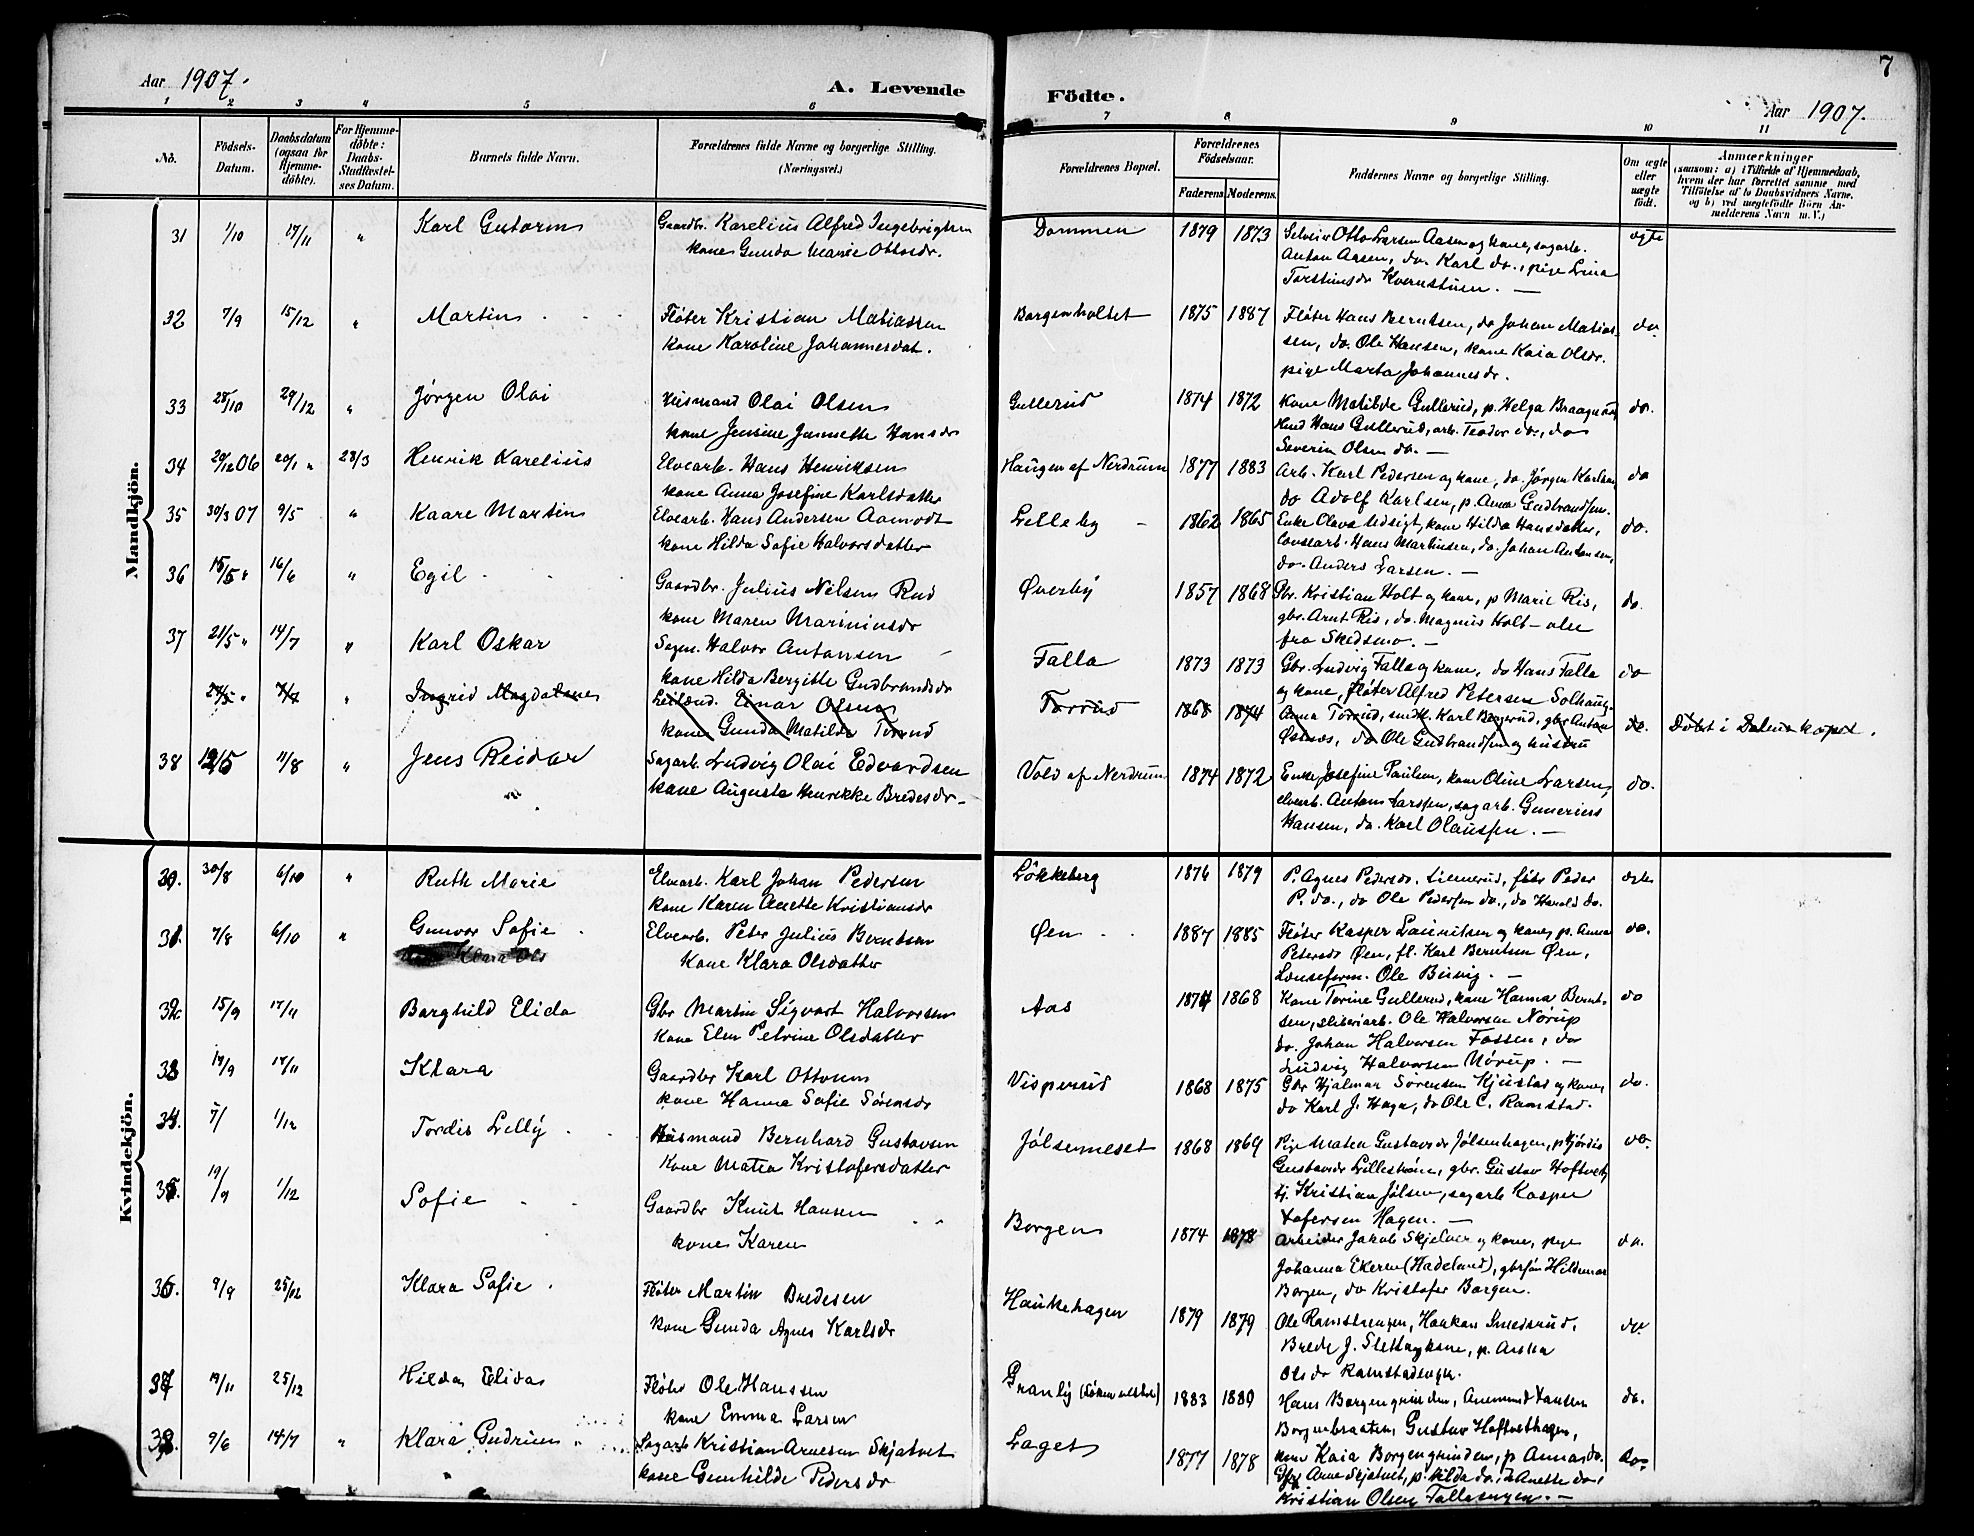 Aar 1907.
A. Levende Födte.
7
Aar 1907.
1 2 3 4 5 6 7 8 9 10 11
No.
Födsels-Datum.
Daabsdatum (ogsaa for Hjemme-döbte).
For Hjemme-döbte: Daabs-Stadfæstel-ses Datum.
Barnets fulde Navn.
Forældrenes fulde Navne og borgerlige Stilling. (Næringsvei.)
Forældrenes Bopæl.
Forældrenes Födselsaar.
Faderens Moderens.
Faddernes Navne og borgerlige Stilling.
Om ægte eller uægte födt.
Anmærkninger
(saasom: a) i Tilfælde af Hjemmedaab,
hvem der har forrettet samme med
Tilföielse af to Daabsvidners Navne,
og b) ved uægtefödte Börn An-
melderens Navn m. V.)
Mandkjön.
31 1/10 17/11 " Karl Gutorm Gaardbr. Karelius Alfred Ingebrigtsen Dammen 1879 1873 Selveier Otto Larsen Aasen og kone, sagarb. ægte
kone Gunda Marie Ottosdr. Anton Aasen, do. Karl do., pige Lina
Torstinsdr Kvernstuen. —
32 7/9 15/12 " Martin Fløter Kristian Matiassen Borgenholtet 1875 1887 Fløter Hans Berntsen, do Johan Matias- do
kone Karoline Johannesdat. sen, do. Ole Hansen, kone Kaia Olsdr.
pige Marta Johannesdr.
33 28/10 29/12 " Jørgen Olai Husmand Olai Olsen Gullerud 1874 1872 Kone Matilde Gullerud, p. Helga Braagaas, do.
kone Jensine Jannette Hansdr Hans Gullerud, arb. Teodor do., do
Severin Olsen do. —
34 29/12 06 20/1 " 28/3 Henrik Karelius Elvearb. Hans Henriksen Haugen af Nerdrum 1877 1883 Arb. Karl Pedersen og kone, do. Jørgen Karlsen, do
kone Anna Josefine Karlsdatter do Adolf Karlsen, p. Anna Gudbrandsen.
35 30/3 07 9/5 " Kaare Martin Elvearb. Hans Andersen Aamodt Lilleby 1862 1865 Enke Olava Udsigt, kone Hilda Hansdatter, do.
kone Hilda Sofie Halvorsdatter Hans Martinsen, do. Johan Antonsen,
do. Anders Larsen. —
36 15/5 " 16/6 " Egil Gaardbr. Julius Nilsen Rud Øverby 1857 1868 Gbr. Kristian Holt og kone, p Marie Ris, do.
kone Maren Martinsdr gbr. Arnt Ris, do. Magnus Holt — alle
fra Skedsmo. —
37 21/5 " 14/7 " Karl Oskar Sagm. Halvor Antonsen Falla 1873 1873 Gbr. Ludvig Falla og kone, do Hans Falla do
kone Hilda Bergitte Gudbrandsdr og kone, fløter Alfred Petersen Solhaug.
24/5 " 7/7 " Ingrid Magdalene Einar Olsen Torrud 1868 1874 Anna Torrud, smdl. Karl Bergerud, gbr Anton do. Døbt i Dalens kapel.
kone Gunda Matilde Torrud do Ole Gudbrandsen og hustru
38 12/5 11/8 " Jens Reidar Sagarb. Ludvig Olai Edvardsen Vold af Nerdrum 1874 1872 Enke Josefine Paulsen, kone Oline Larsen, do.
kone Augusta Henrikke Bredesdr elvearb. Anton Larssen, sagarb. Gunerius
Hansen, do. Karl Olaussen. —
Kvindekjön.
30. 30/8 6/10 " Ruth Marie Elvearb. Karl Johan Pedersen Løkkeberg 1876 1879 P. Agnes Pedersdr. Linnerud, fløter Peder ægte
kone Karen Anette Kristiansdr P. do., do Ole Pedersen do., do Harald do.
31. 7/8 6/10 " Gunvor Sofie Elvearb. Peter Julius Berntsen Øen 1887 1885 Fløter Kasper Lauritsen og kone, p. Anna do.
Kone Klara Olsdatter Petersdr Øen, fl. Karl Berntsen Øen,
Lenseform. Ole Buvig. —
32. 15/9 17/11 Borghild Elida Gbr Martin Sigvart Halvorsen Aas 1874 1868 Kone Torine Gullerud, kone Hanna Bernt- do
Kone Elen Petrine Olsdatter sen, sliberiarb. Ole Halvorsen Nørup
do. Johan Halvorsen Fossen, do
Ludvig Halvorsen Nörup. —
33 14/9 17/11 Klara Gaardbr Karl Ottosen Visperud 1868 1875 Gbr Hjalmar Sörensen Kjustad og kone, do.
kone Hanna Sofie Sörensdr do Karl J. Haga, do Ole C. Ramstad.
34. 1/12 Tordis Lilly Husmand Bernhard Gustavsen Jølsenmeset 1868 1869 Pige Matea Gustavsdr Jølsenhagen, p Hjördis do.
Kone Matea Kristofersdatter Gustavsdr Lilleström, gbr. Gustav Hoftvet,
tj. Kristian Jølsen, sagarb Kasper
tofersen Hagen. —
35. 19/9 1/12 Sofie Gaardbr Knut Hansen Borgen 1874 1878 Arbeider Jakob Skjelver og kone, pige do.
kone Karen Johanna Ekeren (Hadeland), gbrsøn Hildemar
Borgen, do Kristofer Borgen.
36. 9/9 25/12 Klara Sofie Fløter Martin Bredesen Haukehagen 1879 1879 Ole Ramstadengen, Haakon Smedsrud, do
kone Gunda Agnes Karlsdr Brede J. Sletta og kone, p. Anna
Olsdr Ramstadengen.
37 19/11 25/12 Hilda Elida Fløter Ole Hanssen Granly 1883 1880 Hans Borgengrinden, Anemund Hansen do.
kone Emma Larsen Borgenbraaten, Gustav Hoftvethagen,
kone Kaia Borgengrinden, p Anna do.
38. 9/6 14/7 " Klara Gudrun Sagarb Kristian Arnesen Skjatvet Laget 1877 1878 Gbr Arne Skjatvet, p. Hilda do., do Anette do, do.
kone Gunhilde Pedersdr Kristian Olsen Fallasengen. —